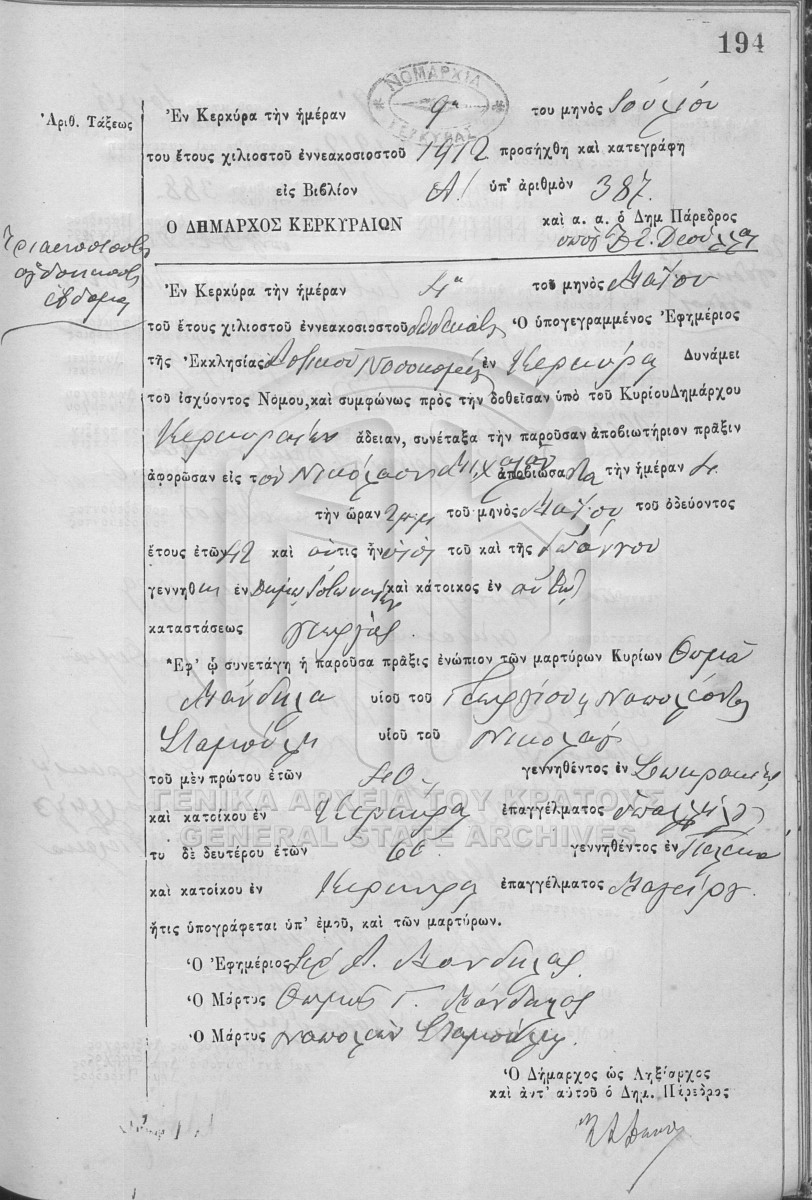 194
ΝΟΜΑΡΧΙΑ
ΚΕΡΚΥΡΑΣ
Ἀριθ. Τάξεως
Ἐν Κερκύρᾳ τὴν ἡμέραν 9η τοῦ μηνὸς Ἰουλίου
τοῦ ἔτους χιλιοστοῦ ἐννεακοσιοστοῦ 1912 προσήχθη καὶ κατεγράφη
εἰς Βιβλίον Α! ὑπ' ἀριθμὸν 387.
Ο ΔΗΜΑΡΧΟΣ ΚΕΡΚΥΡΑΙΩΝ
καὶ α. α. ὁ Δημ Πάρεδρος
Τριακοσιοστὸς
ὀγδοηκοστὸς
ἕβδομος
Ἐν Κερκύρᾳ τὴν ἡμέραν 4η τοῦ μηνὸς Μαΐου
τοῦ ἔτους χιλιοστοῦ ἐννεακοσιοστοῦ δωδεκάτου Ὁ ὑπογεγραμμένος Ἐφημέριος
τῆς Ἐκκλησίας Νοσοκομείου ἐν Κερκύρᾳ Δυνάμει
τοῦ ἰσχύοντος Νόμου, καὶ συμφώνως πρὸς τὴν δοθεῖσαν ὑπὸ τοῦ Κυρίου Δημάρχου
Κερκυραίων ἄδειαν, συνέταξα τὴν παροῦσαν ἀποβιωτήριον πρᾶξιν
ἀφορῶσαν εἰς τὸν Νικόλαον ἀποβιώσαντα τὴν ἡμέραν 4.
τὴν ὥραν τοῦ μηνὸς Μαΐου τοῦ ὁδεύοντος
ἔτους ἐτῶν 42 καὶ οὗτις ἦν υἱὸς τοῦ καὶ τῆς Ἰωάννου
γεννηθεὶς ἐν καὶ κάτοικος ἐν
καταστάσεως γεωργὸς
Ἐφ' ᾧ συνετάγη ἡ παροῦσα πρᾶξις ἐνώπιον τῶν μαρτύρων Κυρίων Θωμᾶ
Μάνδηλα υἱοῦ τοῦ Γεωργίου κ Ναπολέοντος
Σταμπούλη υἱοῦ τοῦ Νικολάου
τοῦ μὲν πρώτου ἐτῶν 40 γεννηθέντος ἐν Σωκράκι
καὶ κατοίκου ἐν Κερκύρᾳ ἐπαγγέλματος ὑπαλλήλου
τυ δὲ δευτέρου ἐτῶν 66 γεννηθέντος ἐν
καὶ κατοίκου ἐν Κερκύρᾳ ἐπαγγέλματος Μαγείρου.
ἥτις ὑπογράφεται ὑπ' ἐμοῦ, καὶ τῶν μαρτύρων.
Ὁ Ἐφημέριος Ἱερ Α. Μάνδηλας
Ὁ Μάρτυς Θωμᾶς Γ. Μάνδηλας
Ὁ Μάρτυς Ναπολέων Σταμπούλης
Ὁ Δήμαρχος ὡς Ληξίαρχος
καὶ ἀντ' αὐτοῦ ὁ Δημ. Πάρεδρος
ΓΕΝΙΚΑ ΑΡΧΕΙΑ ΤΟΥ ΚΡΑΤΟΥΣ
GENERAL STATE ARCHIVES